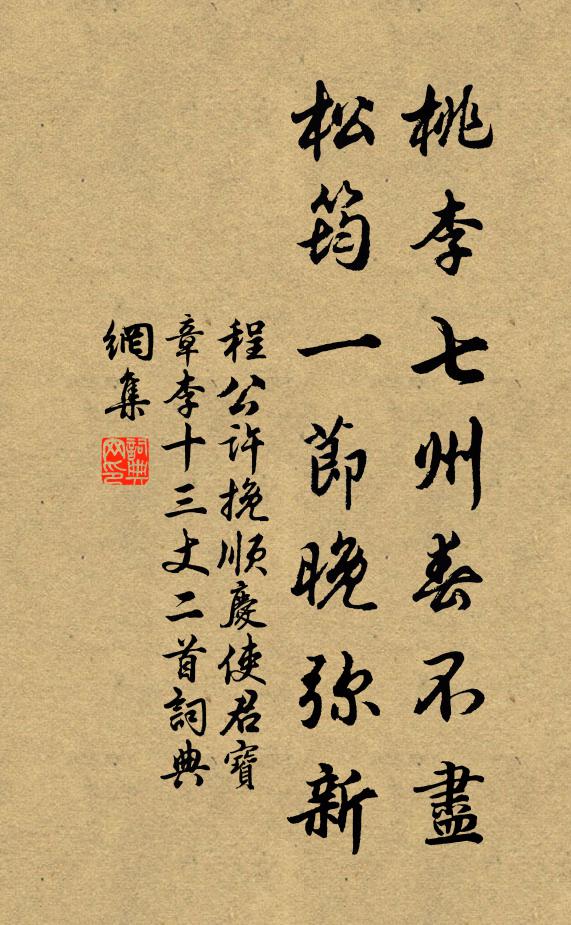 桃李七州春不盡
松筠一節晚弥新
程公許挽順慶使君寶
章李十三丈二首詞典
網集
詞典網印